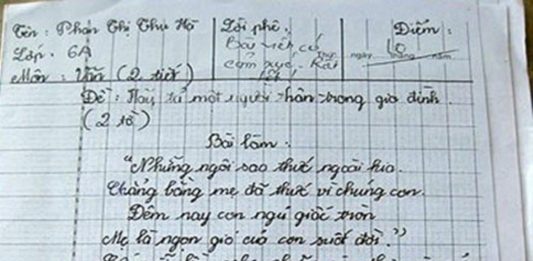 Tên : Phan Thị Thu Hà
Lớp : 6A
Môn : Văn (2 tiết)
Lời phê :
Bài viết có
cảm xúc. Rất
tốt!
Điểm :
10
Thứ ngày tháng năm
Đề : Hãy tả một người thân trong gia đình
(2 tờ)
Bài làm :
"Những ngôi sao thức ngoài kia
Chẳng bằng mẹ đã thức vì chúng con
Đêm nay con ngủ giấc tròn
Mẹ là ngọn gió của con suốt đời."